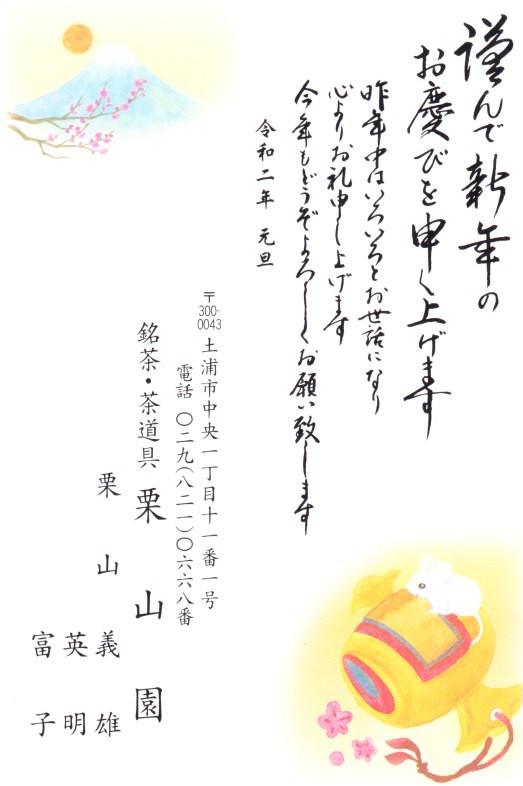 謹んで新年の
お慶びを申し上げます
昨年中はいろいろとお世話になり
心よりお礼申し上げます
今年もどうぞよろしくお願い致します
令和二年 元旦
〒300-0043 土浦市中央一丁目十一番一号
電話 〇二九(八二一)〇六六八番
銘茶・茶道具 栗山園
栗山 義雄
英明
富子